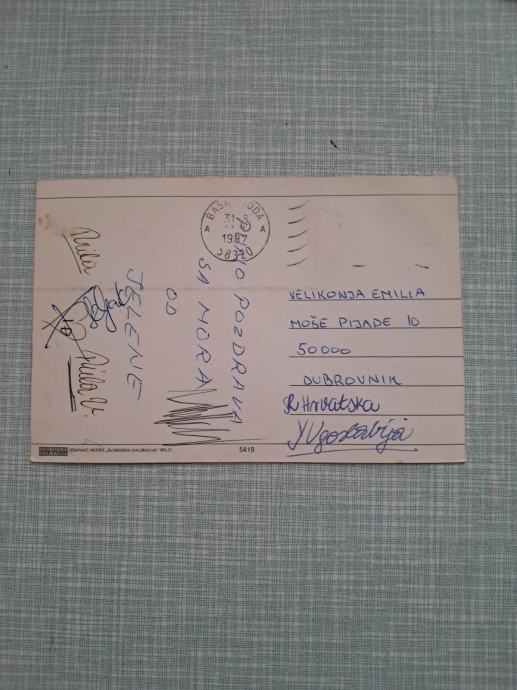 BAŠKA VODA
1987
PUNO POZDRAVA
SA MORA
OD
JELENE
Mila
Mila V.
VELIKONJA EMILIA
MOŠE PIJADE 10
50000
DUBROVNIK
R Hrvatska
Yugoslavija
SLOBODNA DALMACIJA
IZDAVAČ: NIRO „SLOBODNA DALMACIJA" SPLIT
5419